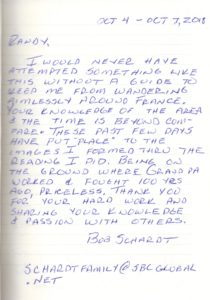 OCT 4 - OCT 7, 2018
RANDY,
I WOULD NEVER HAVE
ATTEMPTED SOMETHING LIKE
THIS WITHOUT A GUIDE TO
KEEP ME FROM WANDERING
AIMLESSLY AROUND FRANCE.
YOUR KNOWLEDGE OF THE AREA
& THE TIME IS BEYOND COM-
PARE. THESE PAST FEW DAYS
HAVE PUT "PLACE" TO THE
IMAGES I FORMED THRU THE
READING I DID. BEING ON
THE GROUND WHERE GRANDPA
WORKED & FOUGHT 100 YRS
AGO, PRICELESS. THANK YOU
FOR YOUR HARD WORK AND
SHARING YOUR KNOWLEDGE
& PASSION WITH OTHERS.
BOB SCHARDT
SCHARDTFAMILY@SBCGLOBAL
.NET